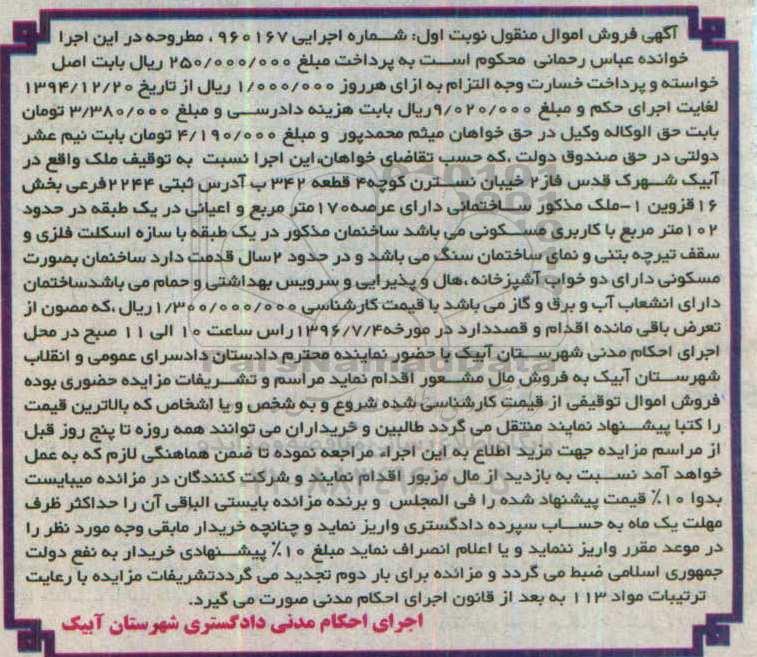 آگهی فروش اموال منقول نوبت اول: شماره اجرایی ۹۶۰۱۶۷ ، مطروحه در این اجرا
خوانده عباس رحمانی محکوم است به پرداخت مبلغ ۲۵۰/۰۰۰/۰۰۰ ریال بابت اصل
خواسته و پرداخت خسارت وجه التزام به ازای هرروز ۱/۰۰۰/۰۰۰ ریال از تاریخ ۱۳۹۴/۱۲/۲۰
لغایت اجرای حکم و مبلغ ۹/۰۲۰/۰۰۰ریال بابت هزینه دادرسی و مبلغ ۳/۳۸۰/۰۰۰ تومان
بابت حق الوکاله وکیل در حق خواهان میثم محمدپور و مبلغ ۴/۱۹۰/۰۰۰ تومان بابت نیم عشر
دولتی در حق صندوق دولت ،که حسب تقاضای خواهان،این اجرا نسبت به توقیف ملک واقع در
آبیک شهرک قدس فاز۲ خیبان نسترن کوچه۴ قطعه ۳۴۲ ب آدرس ثبتی ۲۲۴۴فرعی بخش
۱۶قزوین ۱-ملک مذکور ساختمانی دارای عرصه۱۷۰متر مربع و اعیانی در یک طبقه در حدود
۱۰۲متر مربع با کاربری مسکونی می باشد ساختمان مذکور در یک طبقه با سازه اسکلت فلزی و
سقف تیرچه بتنی و نمای ساختمان سنگ می باشد و در حدود ۲سال قدمت دارد ساختمان بصورت
مسکونی دارای دو خواب آشپزخانه ،هال و پذیرایی و سرویس بهداشتی و حمام می باشدساختمان
دارای انشعاب آب و برق و گاز می باشد با قیمت کارشناسی ۱/۳۰۰/۰۰۰/۰۰۰ریال ،که مصون از
تعرض باقی مانده اقدام و قصددارد در مورخه۱۳۹۶/۷/۴راس ساعت ۱۰ الی ۱۱ صبح در محل
اجرای احکام مدنی شهرستان آبیک با حضور نماینده محترم دادستان دادسرای عمومی و انقلاب
شهرستان آبیک به فروش مال مشعور اقدام نماید مراسم و تشریفات مزایده حضوری بوده
فروش اموال توقیفی از قیمت کارشناسی شده شروع و به شخص و یا اشخاص که بالاترین قیمت
را کتبا پیشنهاد نمایند منتقل می گردد طالبین و خریداران می توانند همه روزه تا پنج روز قبل
از مراسم مزایده جهت مزید اطلاع به این اجراء مراجعه نموده تا ضمن هماهنگی لازم که به عمل
خواهد آمد نسبت به بازدید از مال مزبور اقدام نمایند و شرکت کنندگان در مزائده میبایست
بدوا ۱۰٪ قیمت پیشنهاد شده را فی المجلس و برنده مزائده بایستی الباقی آن را حداکثر ظرف
مهلت یک ماه به حساب سپرده دادگستری واریز نماید و چنانچه خریدار مابقی وجه مورد نظر را
در موعد مقرر واریز ننماید و یا اعلام انصراف نماید مبلغ ۱۰٪ پیشنهادی خریدار به نفع دولت
جمهوری اسلامی ضبط می گردد و مزائده برای بار دوم تجدید می گرددتشریفات مزایده با رعایت
ترتیبات مواد ۱۱۳ به بعد از قانون اجرای احکام مدنی صورت می گیرد.
اجرای احکام مدنی دادگستری شهرستان آبیک
ParsNamadData